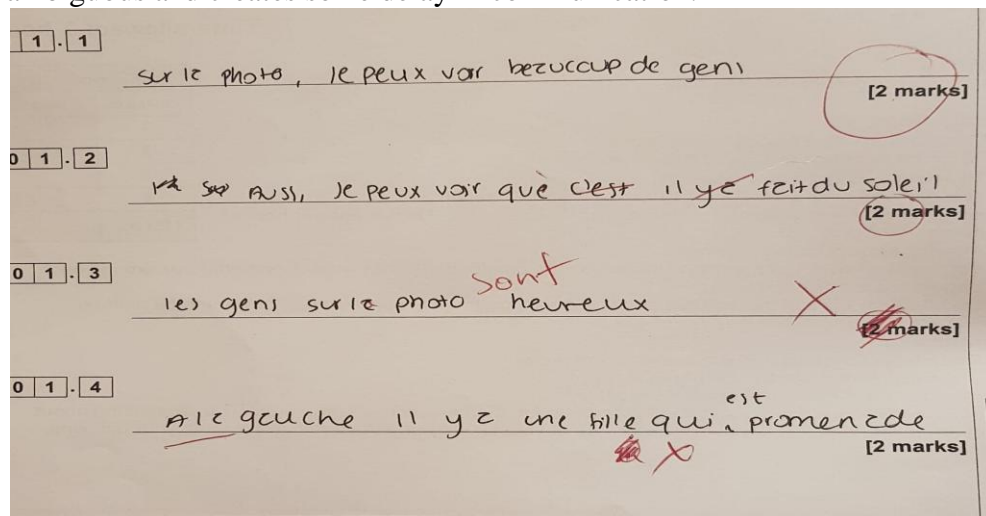 1 . 1
sur la photo, je peux voir beaucoup de gens
[2 marks]
0 1 . 2
Aussi, je peux voir que c'est il ya fait du soleil
[2 marks]
0 1 . 3
sont
les gens sur la photo heureux
[2 marks]
0 1 . 4
est
A la gauche il y a une fille qui promenade
[2 marks]